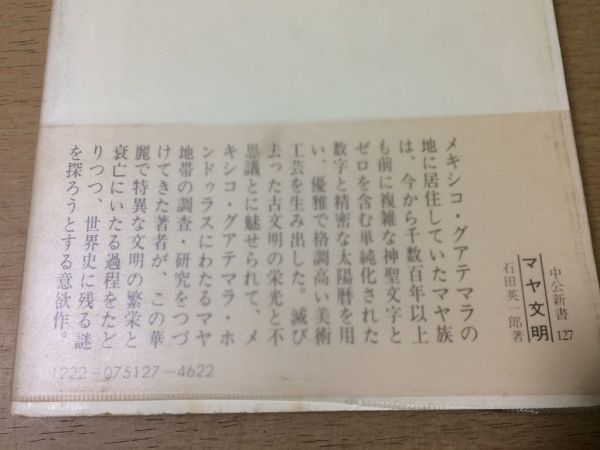 中公新書
127
マヤ文明
石田英一郎著
メキシコ・グアテマラの
地に居住していたマヤ族
は、今から千数百年以上
も前に複雑な神聖文字と
ゼロを含む単純化された
数字と精密な太陽暦を用
い、優雅で格調高い美術
工芸を生み出した。滅び
去った古文明の栄光と不
思議とに魅せられて、メ
キシコ・グアテマラ・ホ
ンドゥラスにわたるマヤ
地帯の調査・研究をつづ
けてきた著者が、この華
麗で特異な文明の繁栄と
衰亡にいたる過程をたど
りつつ、世界史に残る謎
を探ろうとする意欲作。
1222-075127-4622